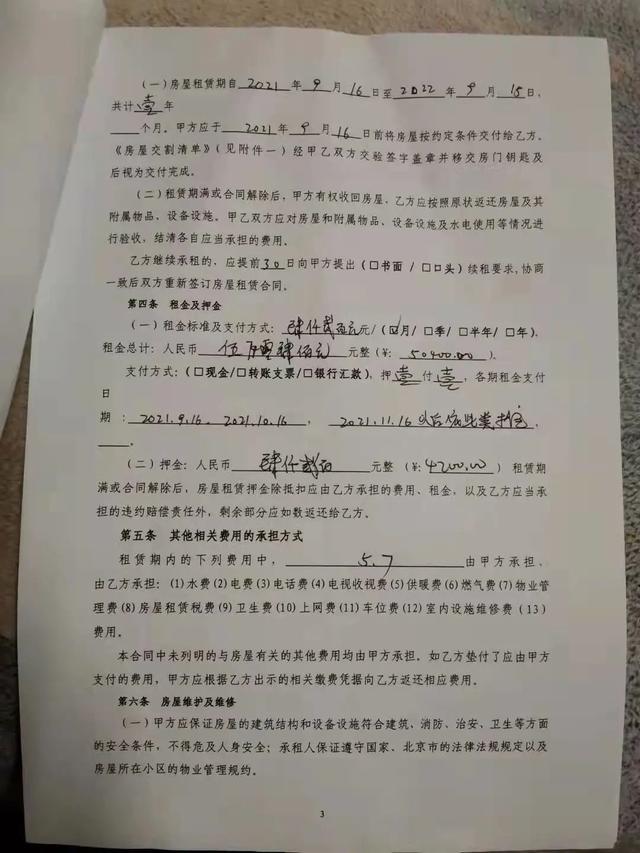 （一）房屋租赁期自 2021 年 9 月 16 日至 2022 年 9 月 15 日，
共计 壹 年
____个月。甲方应于 2021 年 9 月 16 日前将房屋按约定条件交付给乙方。
《房屋交割清单》（见附件一）经甲乙双方交验签字盖章并移交房门钥匙及
后视为交付完成。
（二）租赁期满或合同解除后，甲方有权收回房屋，乙方应按照原状返还房屋及其
附属物品、设备设施。甲乙双方应对房屋和附属物品、设备设施及水电使用等情况进
行验收，结清各自应当承担的费用。
乙方继续承租的，应提前 30 日向甲方提出（□书面 / □口头）续租要求，协商
一致后双方重新签订房屋租赁合同。
第四条 租金及押金
（一）租金标准及支付方式：肆仟贰佰元元/（☑月/□季/□半年/□年），
租金总计：人民币 伍万零肆佰元 元整（¥：50400.00）。
支付方式：（□现金/□转账支票/□银行汇款），押 壹 付 壹，各期租金支付
日
期：2021.9.16. 2021.10.16 ， 2021.11.16 以后依此类推 ，
____。
（二）押金：人民币 肆仟贰佰 元整（¥：4200.00）租赁期
满或合同解除后，房屋租赁押金除抵扣应由乙方承担的费用、租金，以及乙方应当承
担的违约赔偿责任外，剩余部分应如数返还给乙方。
第五条 其他相关费用的承担方式
租赁期内的下列费用中， 5.7 由甲方承担，
由乙方承担：(1)水费(2)电费(3)电话费(4)电视收视费(5)供暖费(6)燃气费(7)物业管
理费(8)房屋租赁税费(9)卫生费(10)上网费(11)车位费(12)室内设施维修费（13）
费用。
本合同中未列明的与房屋有关的其他费用均由甲方承担。如乙方垫付了应由甲方
支付的费用，甲方应根据乙方出示的相关缴费凭据向乙方返还相应费用。
第六条 房屋维护及维修
（一）甲方应保证房屋的建筑结构和设备设施符合建筑、消防、治安、卫生等方面
的安全条件，不得危及人身安全；承租人保证遵守国家、北京市的法律法规规定以及
房屋所在小区的物业管理规约。
3